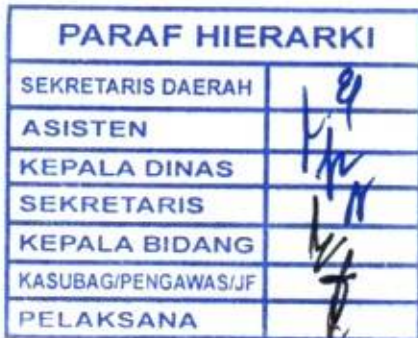 PARAF HIERARKI
SEKRETARIS DAERAH
ASISTEN
KEPALA DINAS
SEKRETARIS
KEPALA BIDANG
KASUBAG/PENGAWAS/JF
PELAKSANA